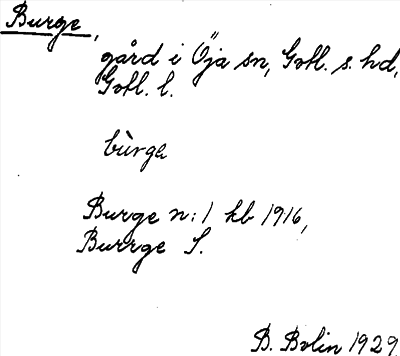 Burge,
gård i Öja sn, Gotl. s. hd,
Gotl. l.
bùrge
Burge n:1 kb 1916,
Burrge S.
B. Bolin 1929